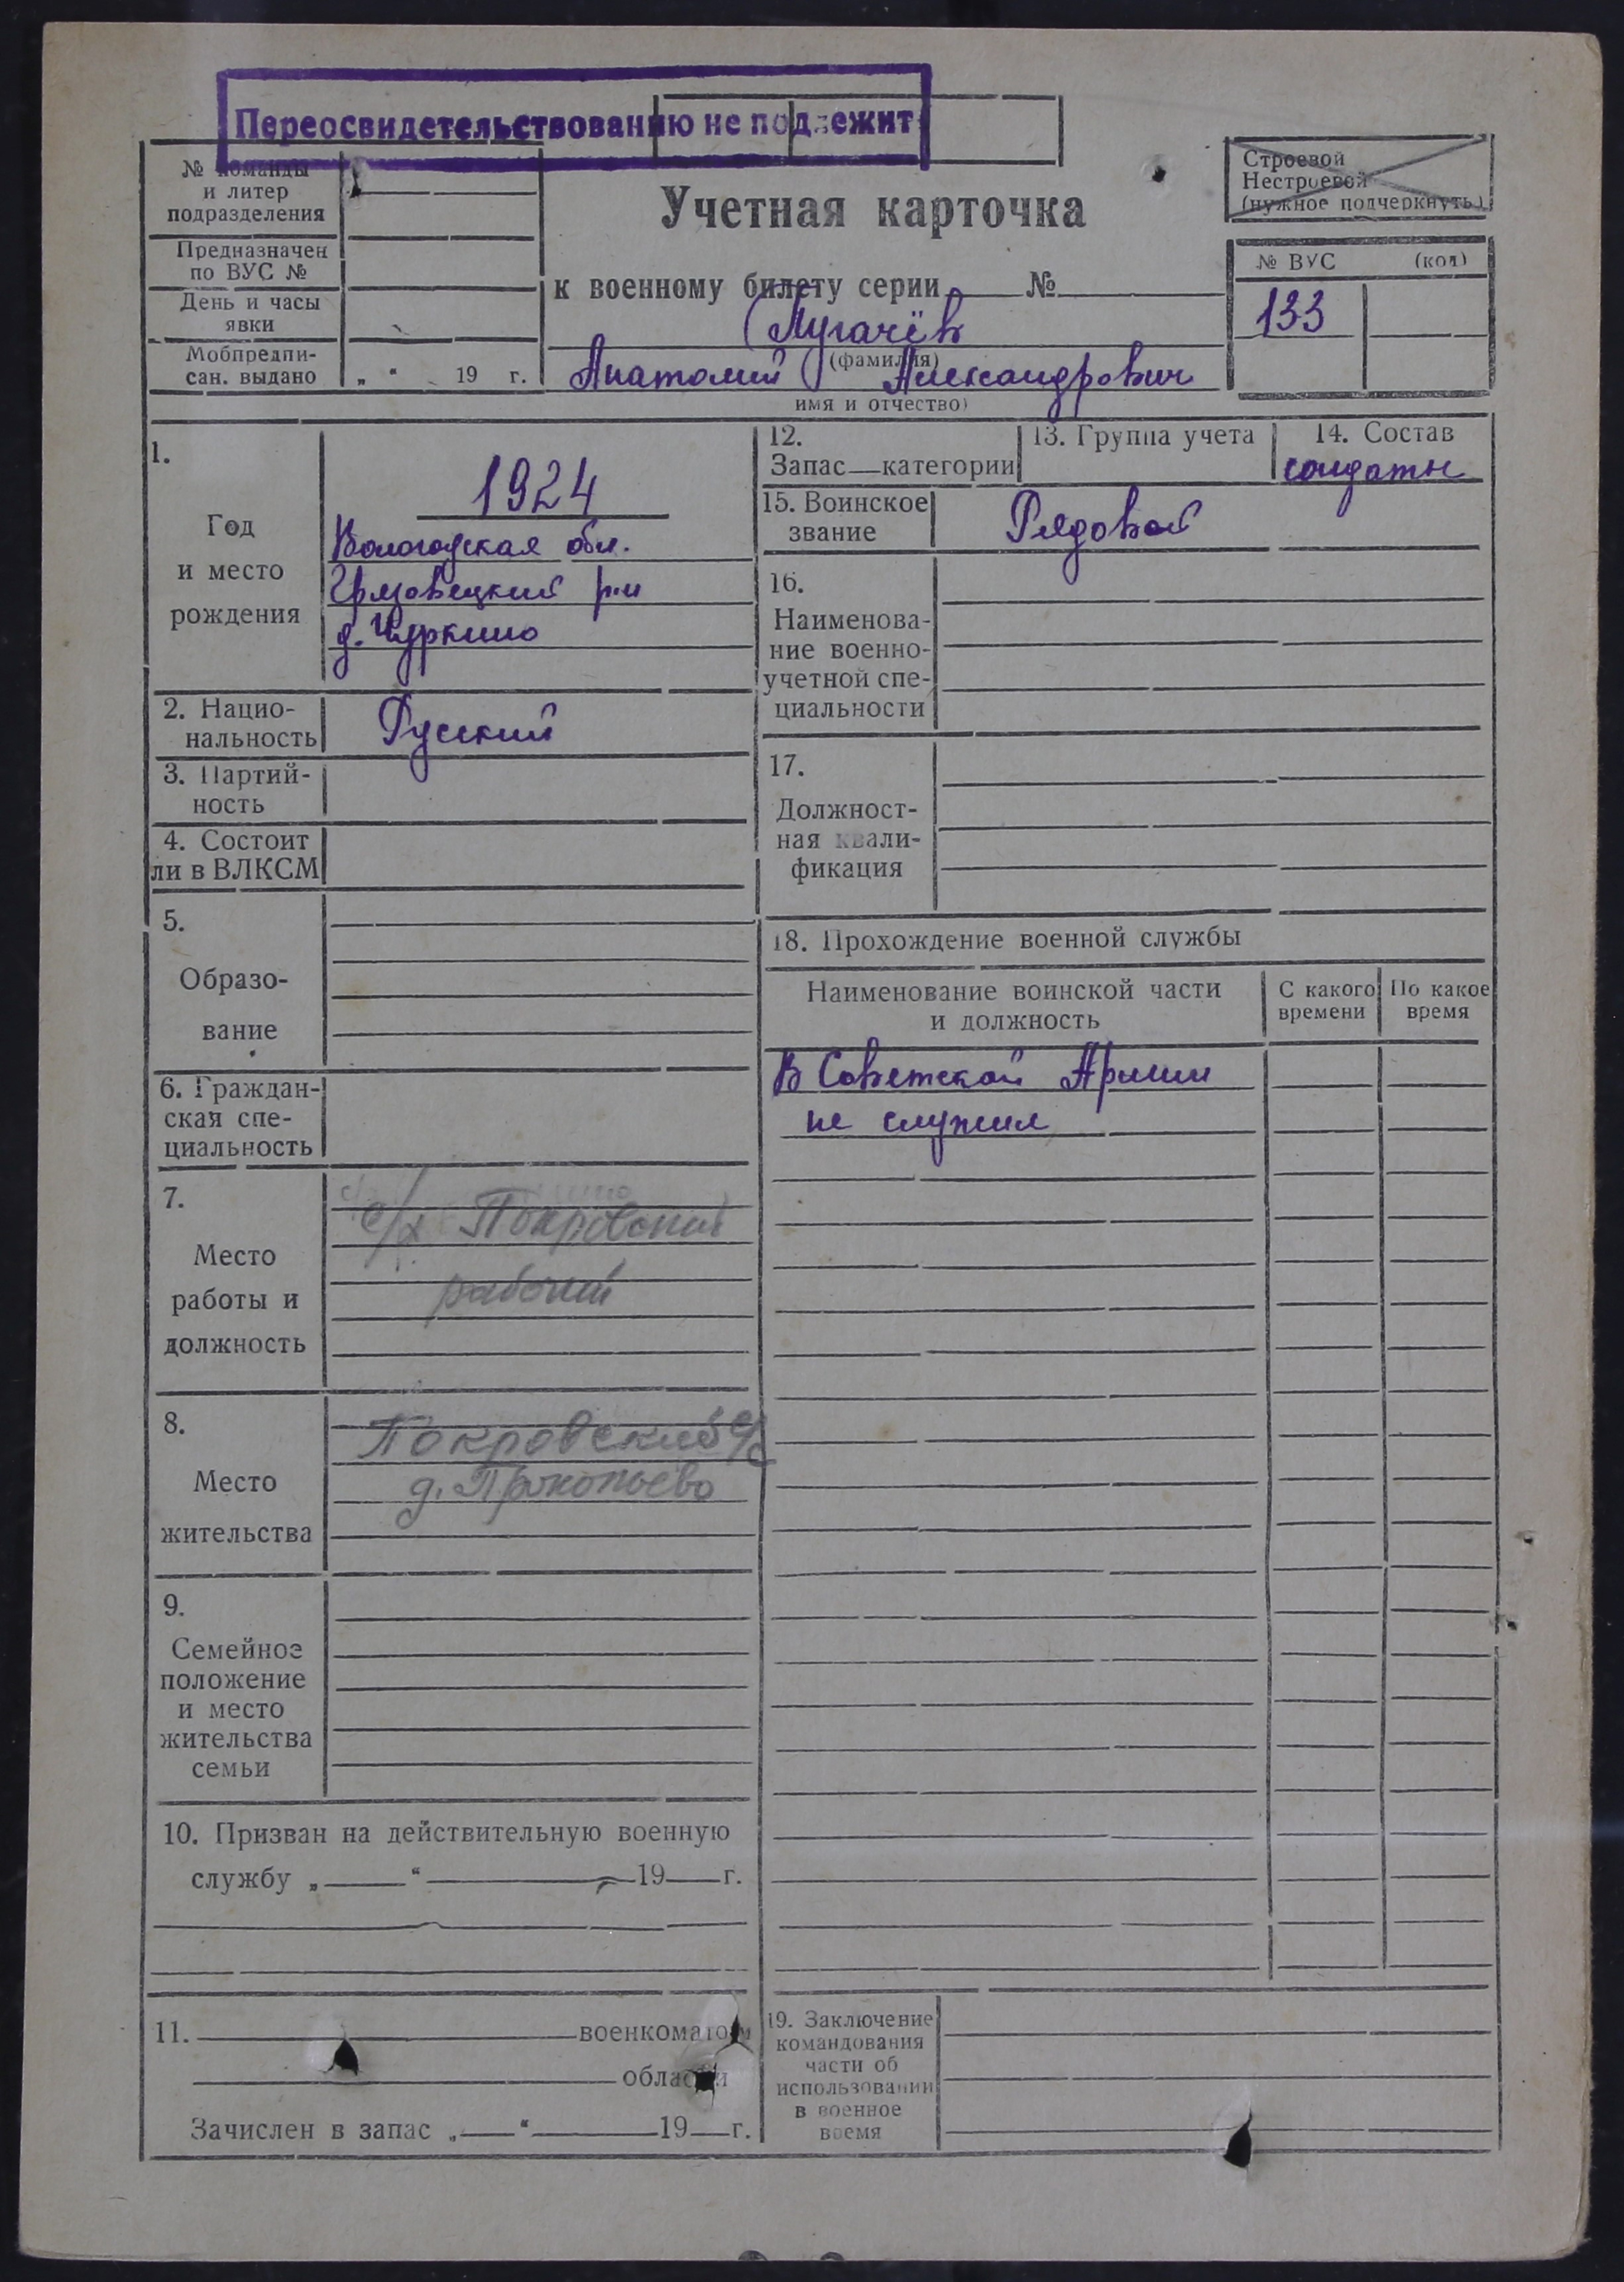 Переосвидетельствованию не подлежит
№ команды
и литер
подразделения
Предназначен
по ВУС №
День и часы
явки
Мобпредпи-
сан. выдано
„ “ 19 г.
Учетная карточка
к военному билету серии №
Пугачёв
(фамилия)
Анатолий Александрович
имя и отчество)
Строевой
Нестроевой
(нужное подчеркнуть)
№ ВУС (код)
133
1.
Год
и место
рождения
1924
Вологодская обл.
Грязовецкий р-н
д. Чуркино
2. Нацио-
нальность
Русский
3. Партий-
ность
4. Состоит
ли в ВЛКСМ
5.
Образо-
вание
6. Граждан-
ская спе-
циальность
7.
Место
работы и
должность
с/х Покровский
рабочий
8.
Место
жительства
Покровский с/с
д. Прокопьево
9.
Семейное
положение
и место
жительства
семьи
10. Призван на действительную военную
службу „ “ 19 г.
11. военкоматом
области
Зачислен в запас „ “ 19 г.
12.
Запас—категории
13. Группа учета
14. Состав
солдаты
15. Воинское
звание
Рядовой
16.
Наименова-
ние военно-
учетной спе-
циальности
17.
Должност-
ная квали-
фикация
18. Прохождение военной службы
Наименование воинской части
и должность
С какого
времени
По какое
время
В Советской Армии
не служил
19. Заключение
командования
части об
использовании
в военное
время